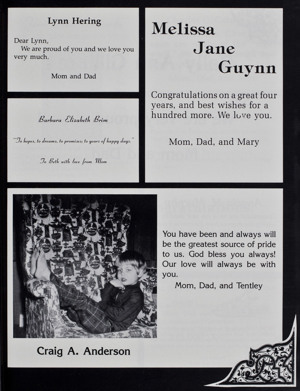 Lynn Hering
Dear Lynn,
We are proud of you and we love you
very much.
Mom and Dad
Barbara Elizabeth Brim
"To hopes, to dreams, to promises; to years of happy days."
To Beth with love from Mom
Melissa
Jane
Guynn
Congratulations on a great four
years, and best wishes for a
hundred more. We love you.
Mom, Dad, and Mary
You have been and always will
be the greatest source of pride
to us. God bless you always!
Our love will always be with
you.
Mom, Dad, and Tentley
Craig A. Anderson